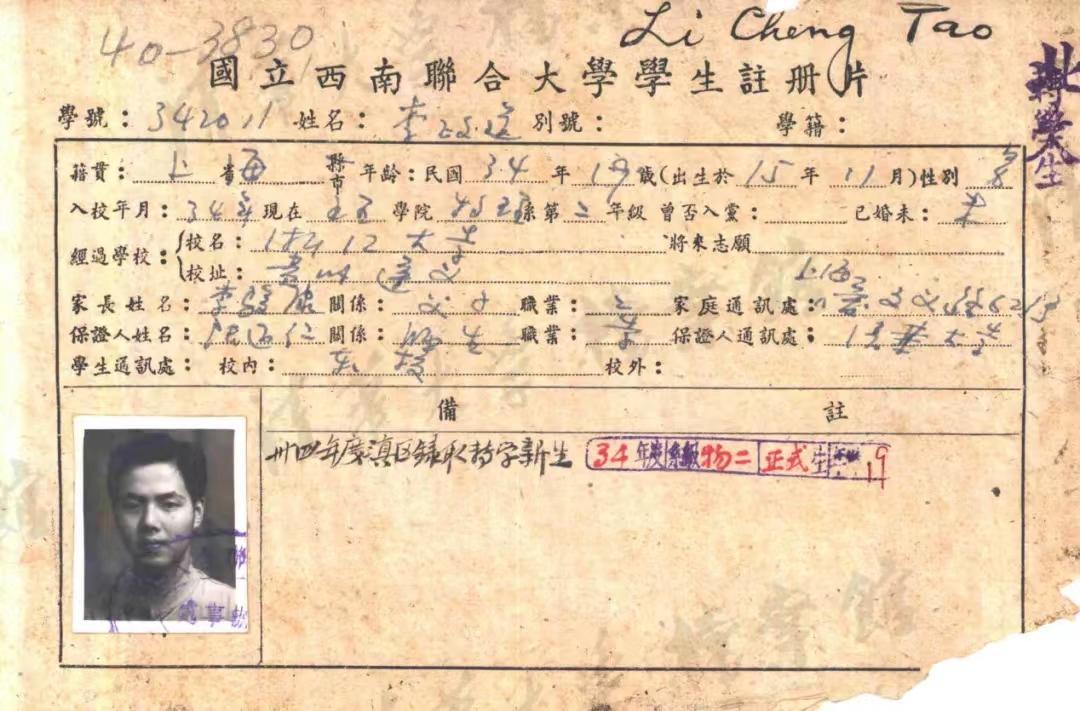 Li Cheng Tao
40-3830
國立西南聯合大學學生註册片
學號：342011 姓名：李政道 別號： 學籍：
籍貫：上省海縣市 年齡：民國34年19歲(出生於15年11月)性別 男
入校年月：34年 現在 理 學院 物理 系第二年級 曾否入黨： 已婚未：未
經過學校：校名：浙江大学 將來志願
校址：貴州遵义
家長姓名：李駿康 關係：父子 職業： 家庭通訊處：上海
保證人姓名： 關係：師生 職業： 保證人通訊處：大学
學生通訊處：校内： 校外：
備 註
卅四年度滇区録取轉学新生 34年度 系級 物二 正式生 19